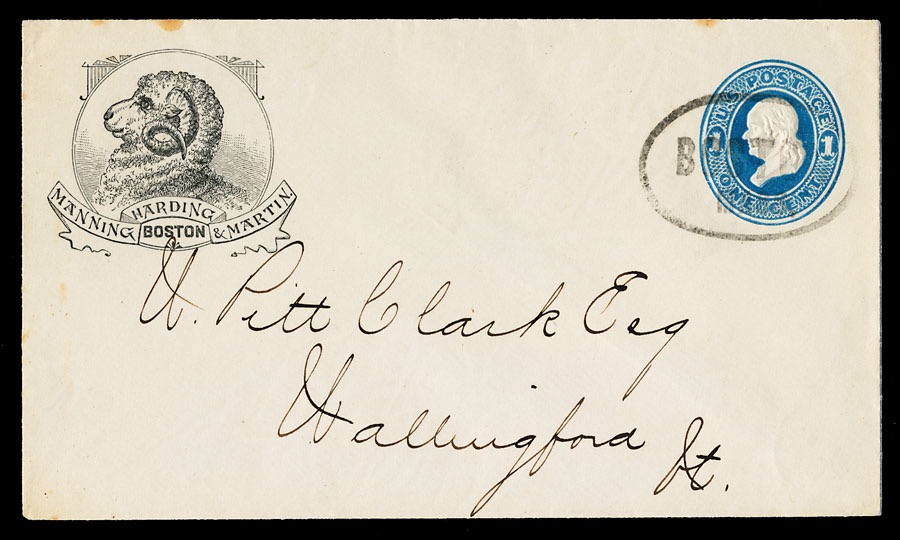 MANNING HARDING & MARTIN.
BOSTON
U.S. POSTAGE
1 1
ONE CENT
W. Pitt Clark Esq
Wallingford Vt.